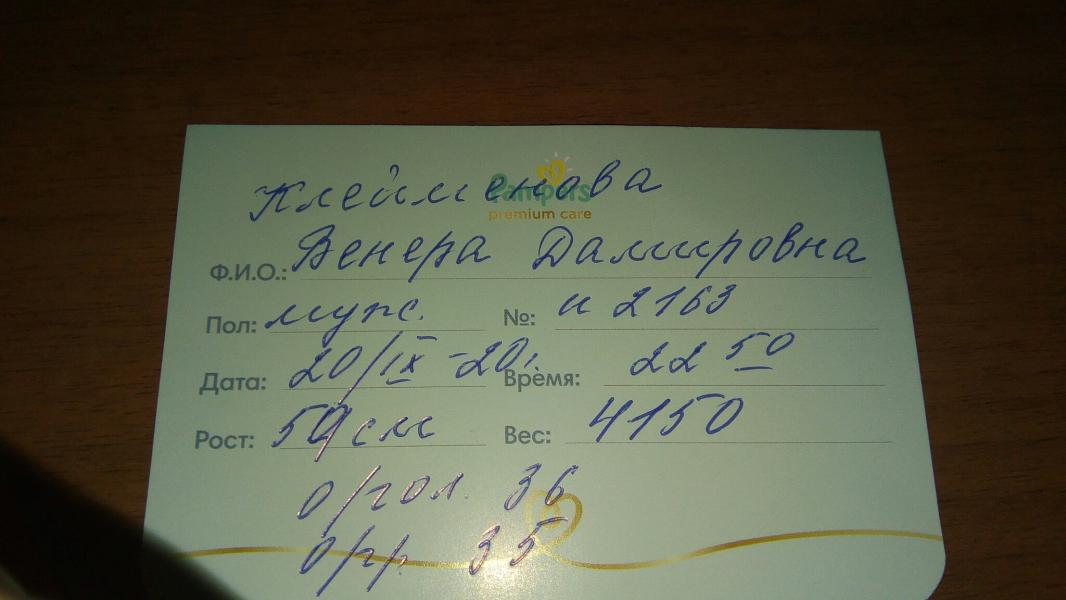 Клейменова
Pampers
premium care
Ф.И.О.: Венера Дамировна
Пол: муж. №: и 2163
Дата: 20/IX -20г. Время: 22 50
Рост: см Вес: 4150
о/гол. 36
о/гр. 35